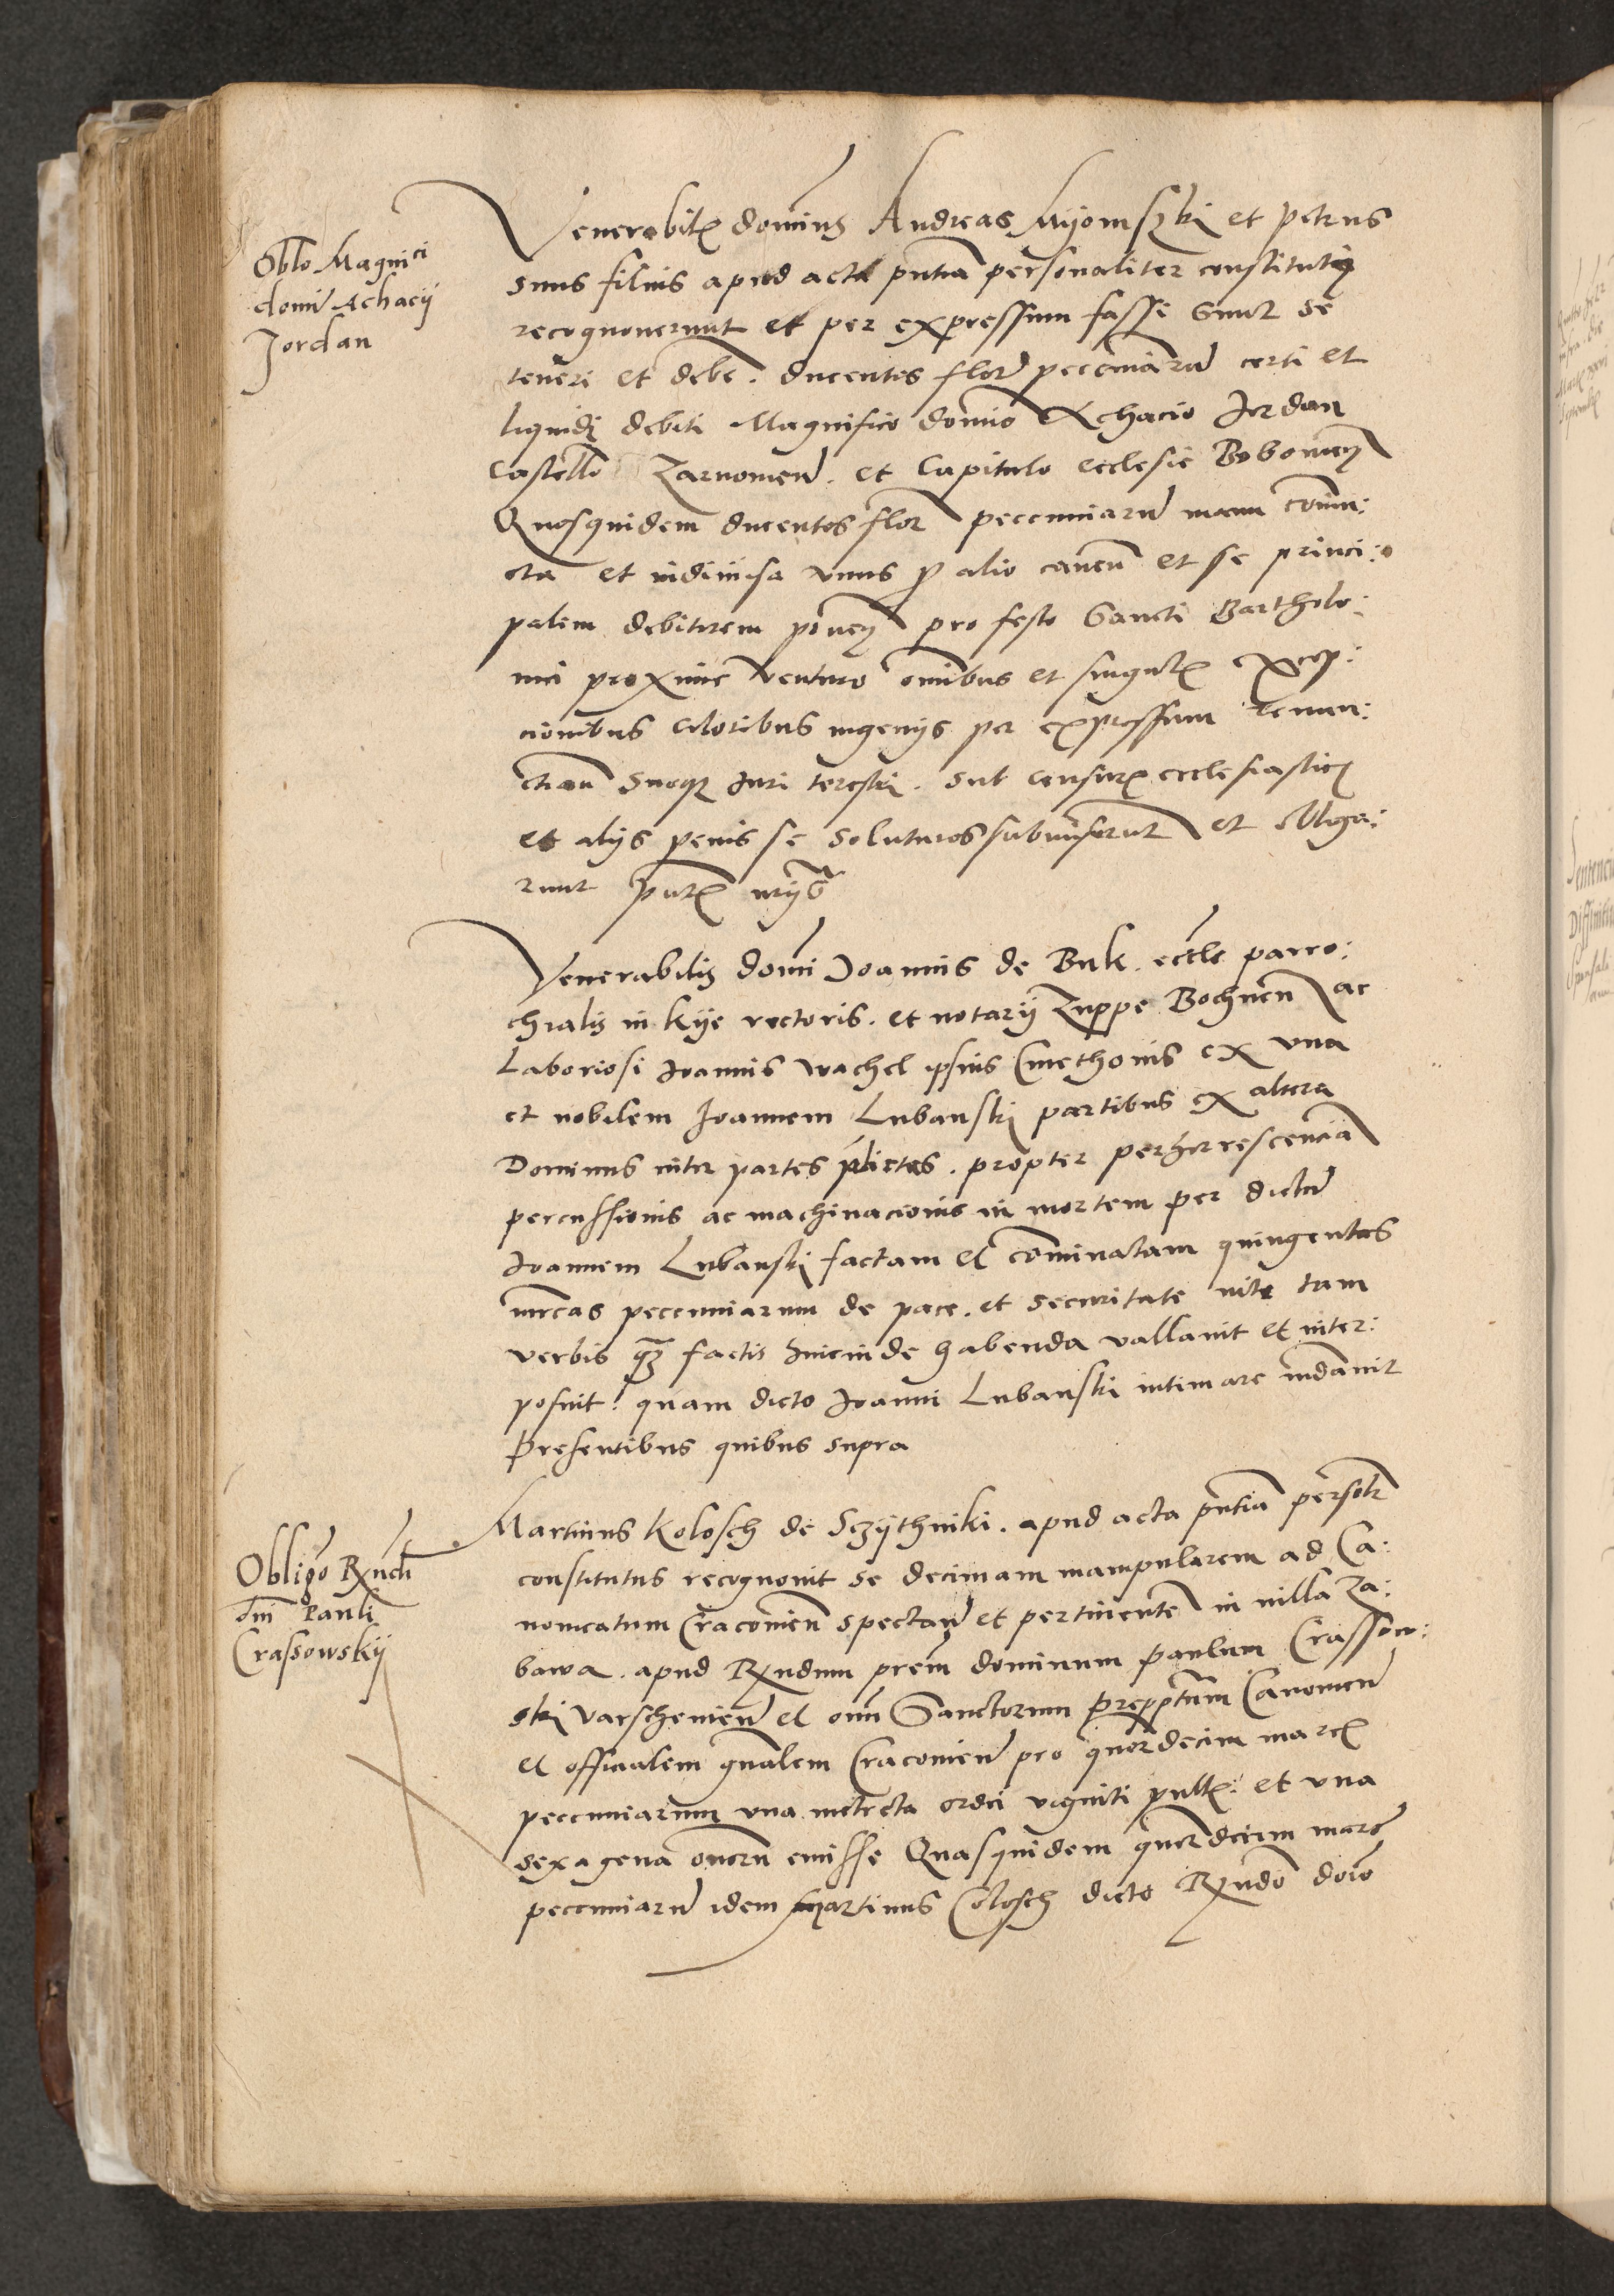 Oblo Magnici
domi Achacij
Jordan
Venerabilꝭ dominꝰ Andreas Mijomszki et Petrus
suus filius apud acta pntia personaliter constituti
recognouerunt et per expressum fasse sunt se
teneri et debe. ducentos flor peccuniaru certi et
liquidi debiti Magnifico domino Achacio Jordan
Castello Zarnomen. et Capitulo ecclesie Bobomen
Quosquidem ducentos flor peccuniaru manu coniu:
cta et indiuisa vnus ꝓ alio cauen et se princi:
palem debitorem ponen pro festo Sancti Bartholo:
mei proxime venturo omibus et singulꝭ excep:
cionibus coloribus ingenijs per expressum renun:
ctian suoqꝫ iuri terestri. sub censurꝭ ecclesiasticꝭ
et alijs penis se soluturos submiserut et obliga:
runt pntꝭ
Venerabilis domi Joannis de Buk. eccle parro:
chialis in Kije rectoris. et notarij Zuppe Bochnen ac
Laboriosi Joannis Wachel ipsius Cmethonis ex vna
et nobilem Joannem Lubanski partibus ex altera
Dominus inter partes pdictas. propter perhorrescencia
percussionis ac machinacionis in mortem per dictu
Joannem Lubanski factam et cominatam quingentas
mrcas peccuniarum de pace. et securitate vite tam
verbis qꝫ factis hincinde habenda vallauit et inter:
posuit. quam dicto Joanni Lubanski intimare mdauit
Presentibus quibus supra
Obligo Rxndi
dni Pauli
Crassowskij
Martinus Kolosch de Sczijthniki. apud acta pntia personlr
constitutus recognouit se decimam manipularem ad Ca:
nonicatum Cracouien spectan et pertinente in villa Za:
bawa. apud Rxndum prem dominum Paulum Crassow:
ski Varscheuien et omn Sanctorum preptum Canonicu
et officialem gnalem Cracouien pro quordecim marcꝭ
peccuniarum vna metreta ordei viginti pullꝭ. et vna
sexagena ouoru emisse Quasquidem quordecim marc
peccuniaru idem Martinus Colosch dicto Rxndo domo